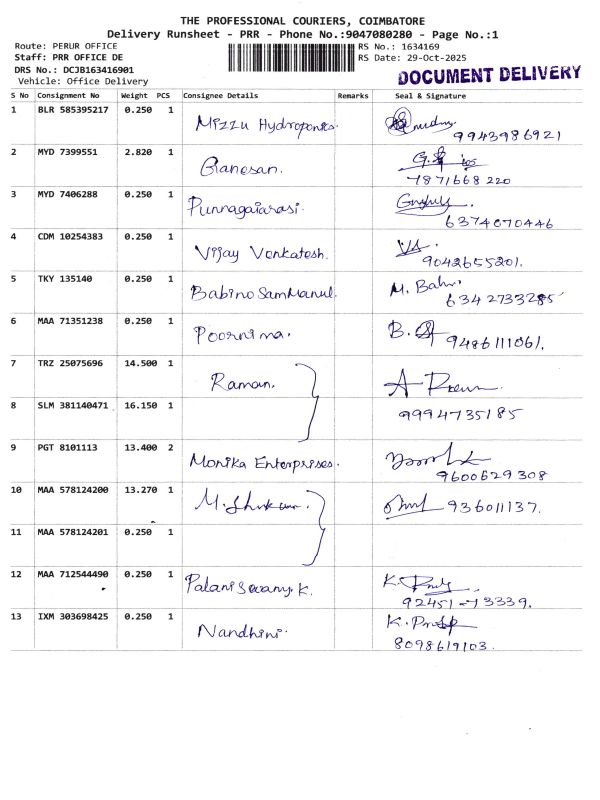 THE PROFESSIONAL COURIERS, COIMBATORE
Delivery Runsheet - PRR - Phone No.:9047080280 - Page No.:1
Route: PERUR OFFICE RS No.: 1634169
Staff: PRR OFFICE DE RS Date: 29-Oct-2025
DRS No.: DCJB163416901 DOCUMENT DELIVERY
Vehicle: Office Delivery
S No Consignment No Weight PCS Consignee Details Remarks Seal & Signature
1 BLR 585395217 0.250 1 Mizzu Hydroponics.
9943986921
2 MYD 7399551 2.820 1 Ganesan.
7871668220
3 MYD 7406288 0.250 1 Punnagaiarasi.
6374070446
4 CDM 10254383 0.250 1 Vijay Venkatesh.
9042655201.
5 TKY 135140 0.250 1 M.
6342733285
6 MAA 71351238 0.250 1 Poornima. B.
9486111061.
7 TRZ 25075696 14.500 1 Raman.
8 SLM 381140471 16.150 1 9994735185
9 PGT 8101113 13.400 2 Monika Enterprises.
9600629308
10 MAA 578124200 13.270 1 M. 936011137.
11 MAA 578124201 0.250 1
12 MAA 712544490 0.250 1 Palaniswamy.K. K.
92451-73339.
13 IXM 303698425 0.250 1 Nandhini. K.
8098619103.